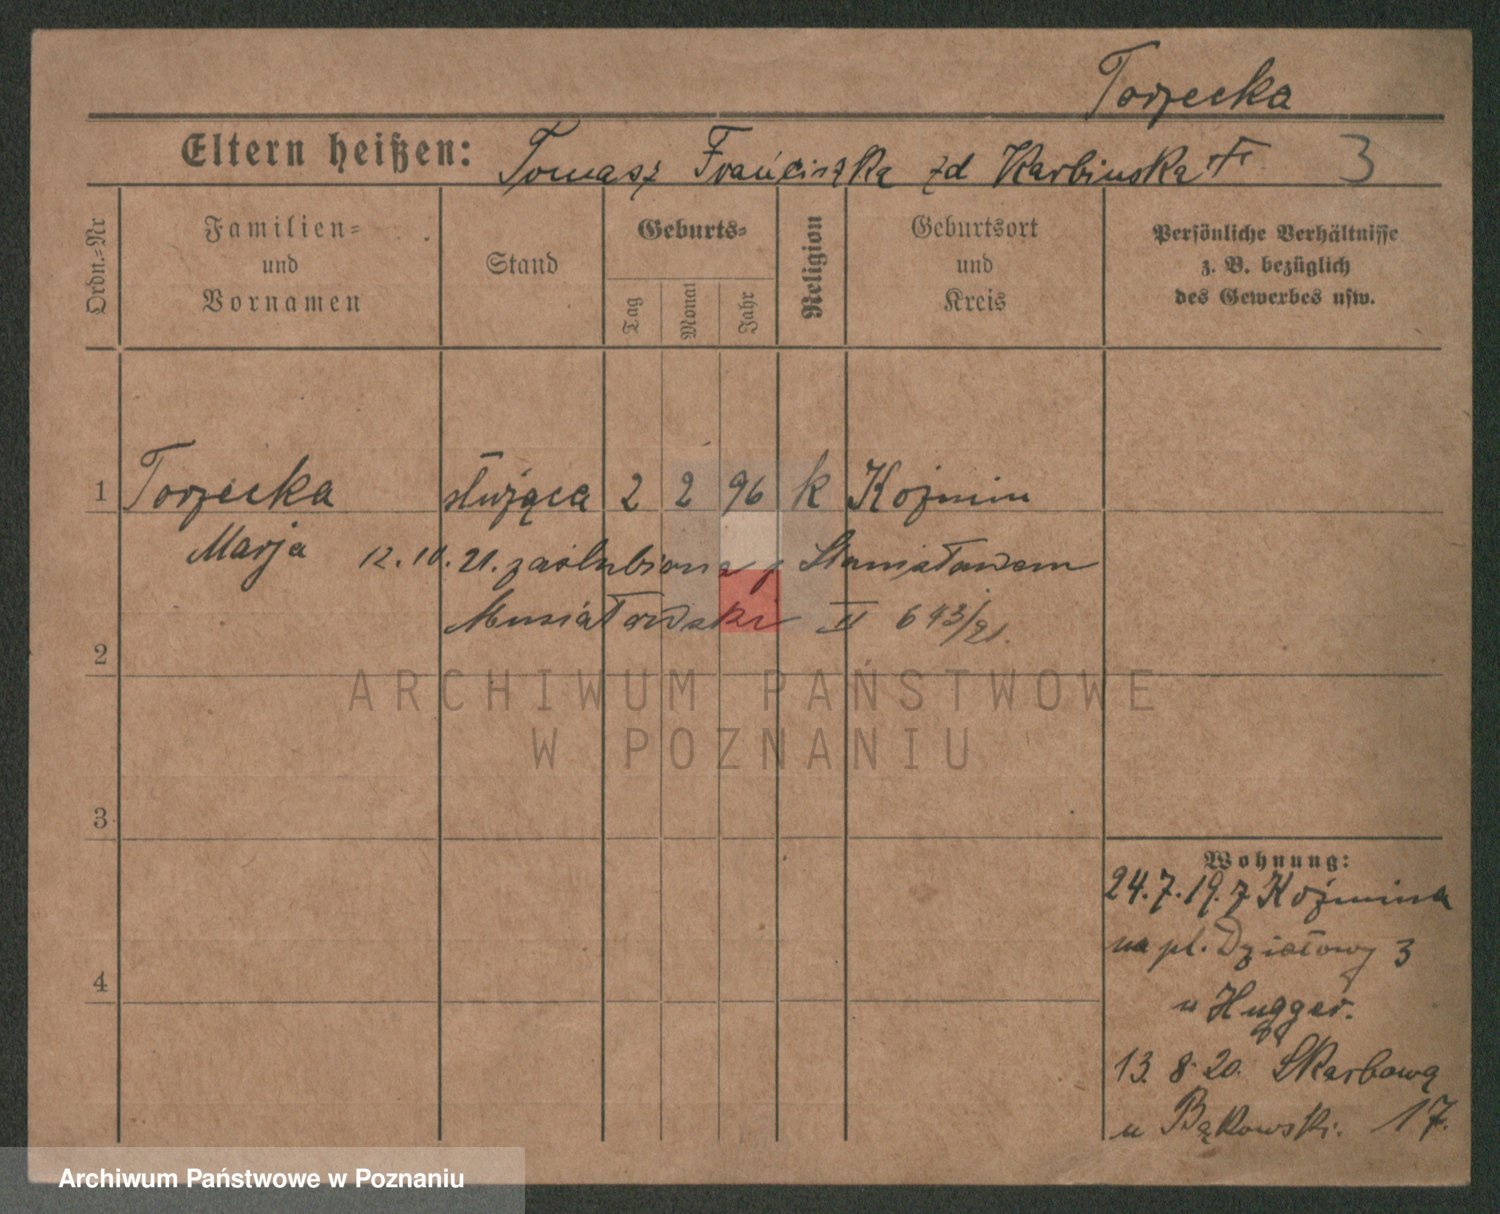 Torzecka
Eltern heißen: Tomasz Franciszka zd Karbinska
3
Ordn.-Nr
Familien-
und
Vornamen
Stand
Geburts-
Tag
Monat
Jahr
Religion
Geburtsort
und
Kreis
Persönliche Verhältnisse
z. B. bezüglich
des Gewerbes usw.
1 Torzecka służąca 2 2 96 k Kozmin
Marja 12.10.21. zaslubiona z Stanisławem
Musiałowski II 643/21.
2
ARCHIWUM PAŃSTWOWE
W POZNANIU
3
4
Wohnung:
24.7.19. z Koźmina
na pl. Działowy 3
u Hugger.
13. 8. 20. Skarbową
u Bąkowski. 17.
Archiwum Państwowe w Poznaniu